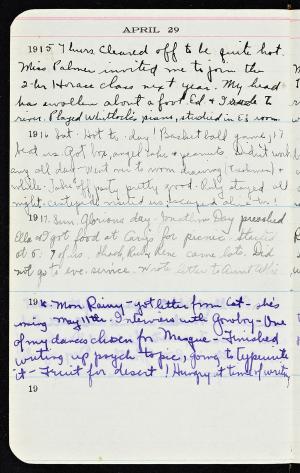 APRIL 29
1915 Thurs Cleared off to be quite hot.
Miss Palmer invited me to join the
2-hr Horace class next year. My head
has swollen about a foot. Ed & I rode to
river. Played Whitlock's piano, studied in E's room
1916 Sat. Hot to-day! Basket ball game, 17
beat us. Got box, angel cake & peanuts. Didn't work
any all day. Went out to
while. Take off party pretty good. stayed all
night. Centipede visited us, escaped alive
1917. Sun. Glorious day. Day preached
Ella & I got food at for picnic. Started
at 5. 7 of us. here came late. Did
not go to eve. service. Wrote letter to Aunt
1918. Mon Rainy - got letter from Cat - she's
coming May 11th. Interviews with - One
of my dances chosen for Masque - Finished
writing up psych topic, going to typewrite
it - Fruit for desert! Hungry at time of writing
19